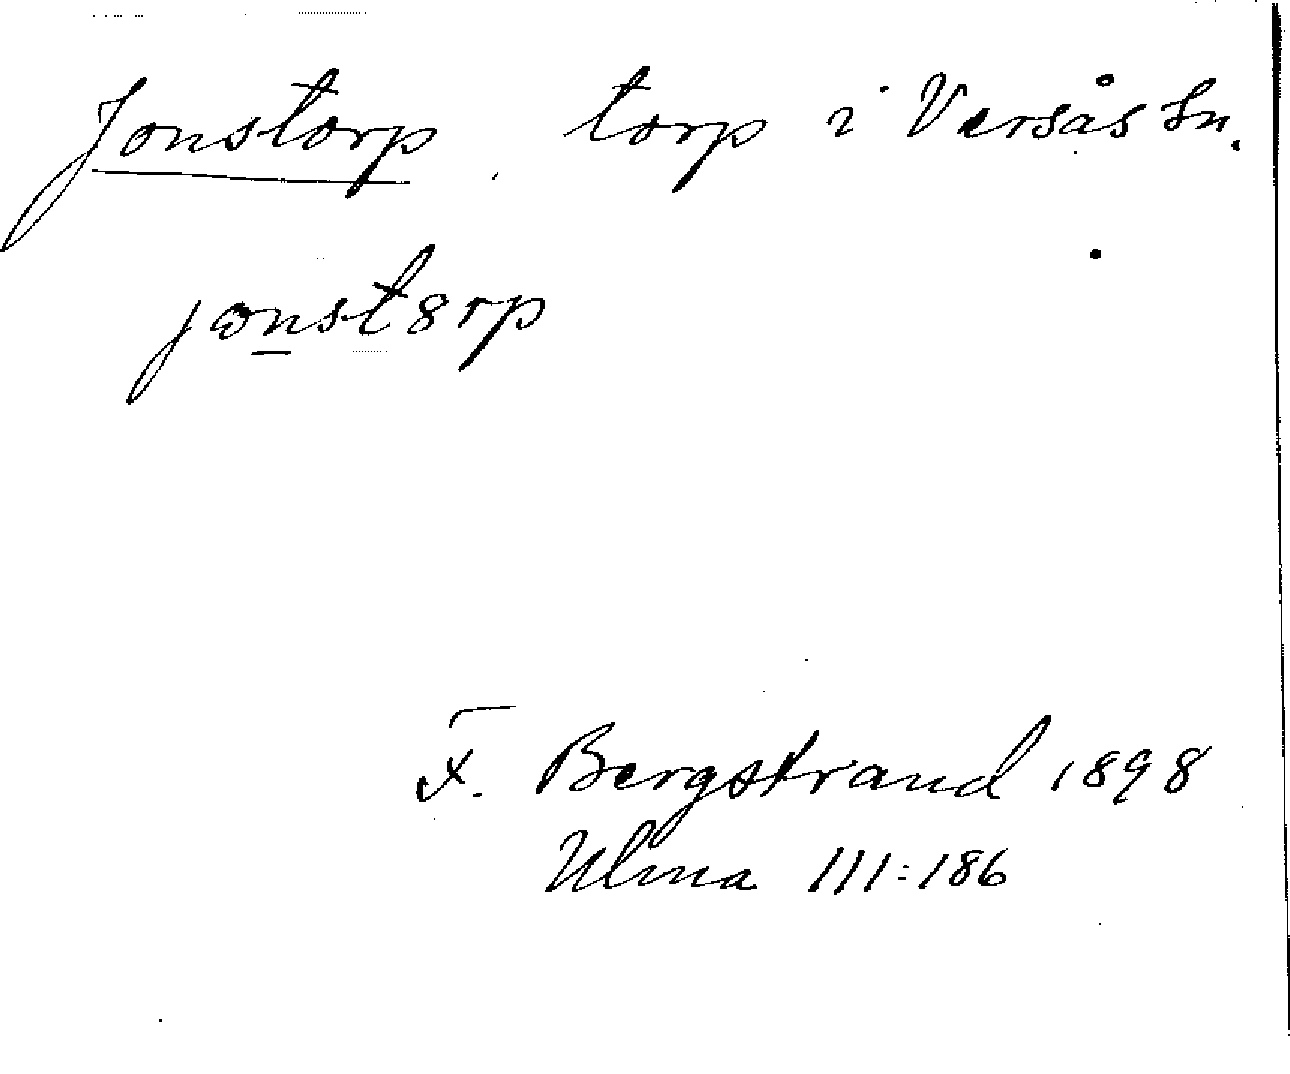 Jonstorp torp i Versås Sn.
jonst8rp
F. Bergstrand 1898
Ulma 111:186